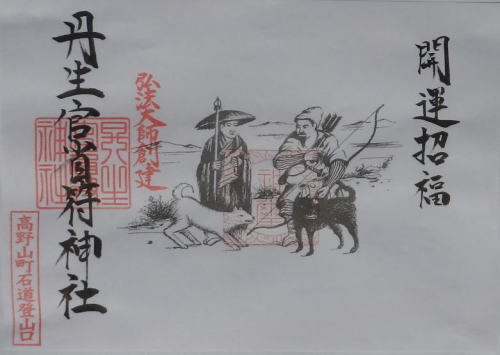 開運招福
弘法大師創建
丹生官省符神社
高野山町石道登山口